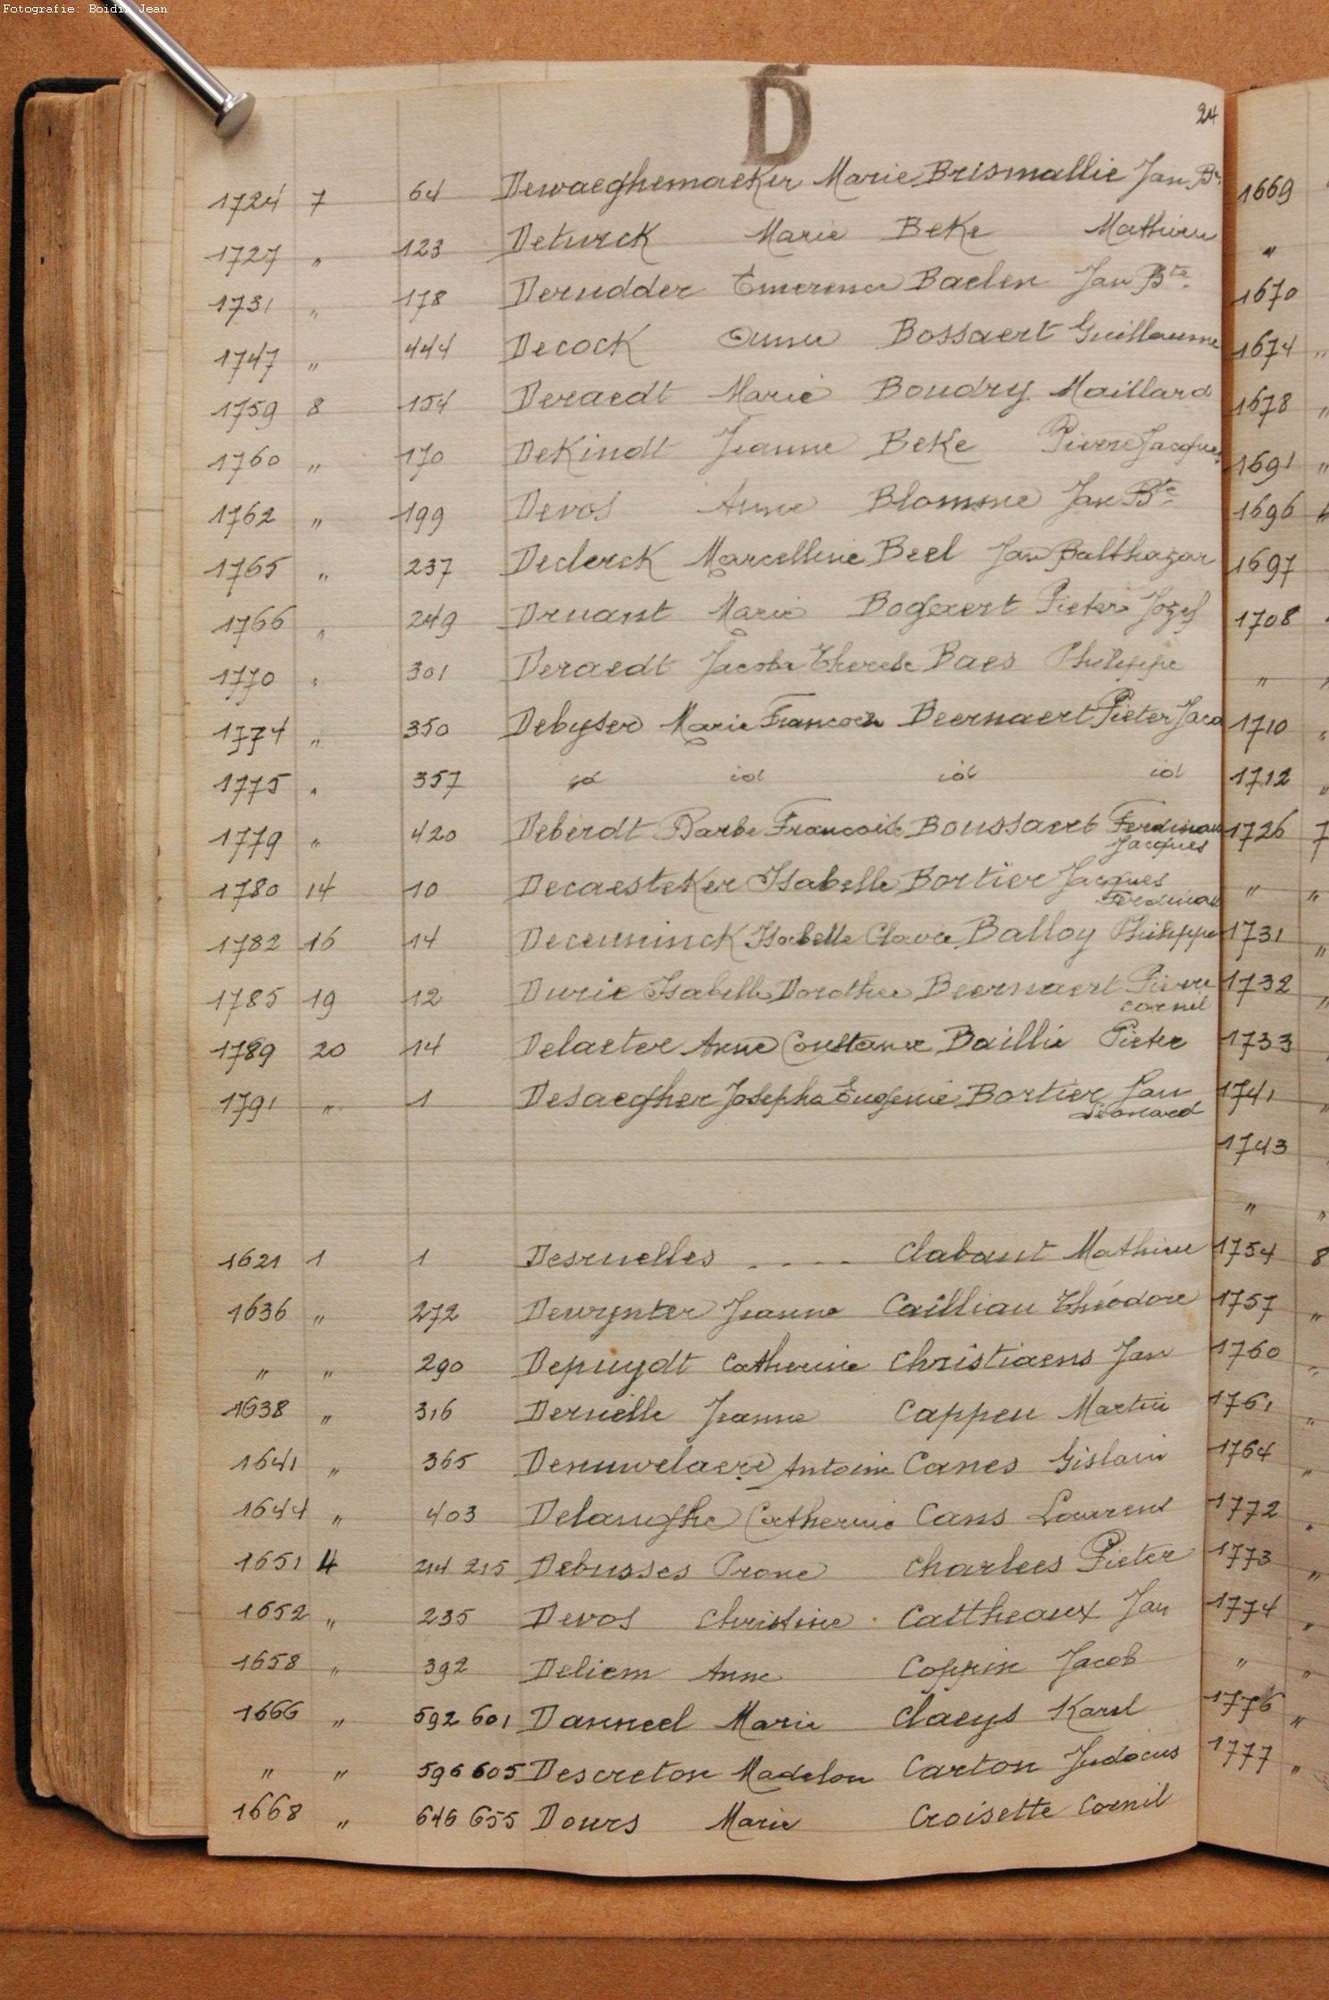 Fotografie: Boidin Jean
D
24
1724 7 64 Dewaeghemaeker Marie Brismallie Jan Bte
1727 " 123 Deturck Marie Beke Mathieu
1731 " 178 Derudder Emerence Baelen Jan Bte
1747 " 444 Decock Anna Bossaert Guillaume
1759 8 154 Deraedt Marie Boudry Maillard
1760 " 170 DeKindt Jeanne Beke Pierre Jacques
1762 " 199 Devos Anne Blomme Jan Bte
1765 " 237 Declerck Marcelline Beel Jan Balthazar
1766 " 249 Druant Marie Bogaert Pieter Jozef
1770 " 301 Deraedt Jacoba Therese Baes Philippe
1774 " 350 Debyser Marie Francois Beernaert Pieter Jaco
1775 " 357 id id id id
1779 " 420 Deberdt Barbe Francoise Boussaert Ferdinan
Jacques
1780 14 10 Decaesteker Isabelle Bortier Jacques
Ferdinan
1782 16 14 Deceuninck Isabelle Clara Balloy Philippe
1785 19 12 Durie Isabelle Dorothee Beernaert Pierre
Cornil
1789 20 14 Delaeter Anne Constance Baillie Pieter
1791 " 1 Desaegher Josepha Eugenie Bortier Jan
Léonard
1621 1 1 Desruelles - - - - Clabaut Mathieu
1636 " 272 Dewynter Jeanne Cailliau Théodore
" " 290 Depuydt Catherine Christiaens Jan
1638 " 316 Deruelle Jeanne Cappeu Martin
1641 " 365 Denuwelaere Antoine Canes Gislain
1644 " 403 Delanghe Catherine Cans Laurens
1651 4 214 215 Debusses Prone Charlees Pieter
1652 " 235 Devos Christine Cattheaux Jan
1658 " 392 Deliem Anne Coppin Jacob
1666 " 592 601 Danneel Marie Claeys Karel
" " 596 605 Descreton Madelon Carton Judocus
1668 " 646 655 Dours Marie Croisette Cornil
1669
"
1670
1674 "
1678 "
1691 "
1696
1697
1708
"
1710 "
1712 "
1726 7
" "
1731 "
1732 "
1733
1741 "
1743
" "
1754 8
1757 "
1760 "
1761 "
1764 "
1772 "
1773 "
1774 "
" "
1776 "
1777 "